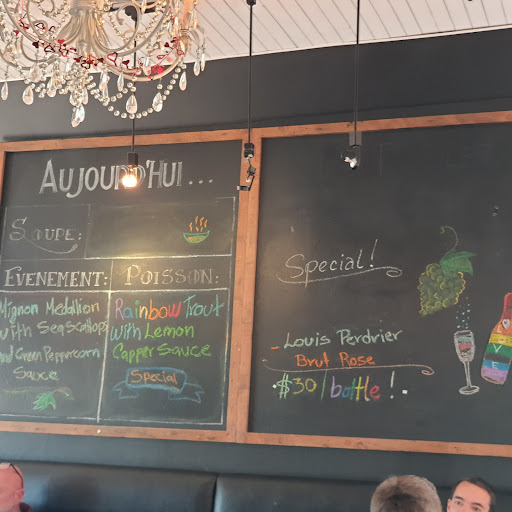 AUJOURD'HUI...
SOUPE:
EVENEMENT:
Mignon Medallion
with Seascallops
and Green Peppercorn
Sauce
POISSON:
Rainbow Trout
with Lemon
Capper Sauce
Special
Special!
- Louis Perdrier
Brut Rose
$30/bottle!